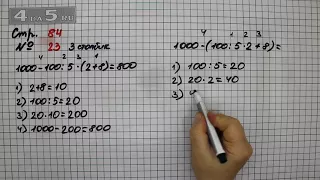 4APS.RU
Стр. 84
№ 23 3 столбик
4 2 3 1
1000-100:5·(2+8)=800
1) 2+8=10
2) 100:5=20
3) 20·10=200
4) 1000-200=800
4 1 2 3
1000-(100:5·2+8)=
1) 100:5=20
2) 20·2=40
3) 4